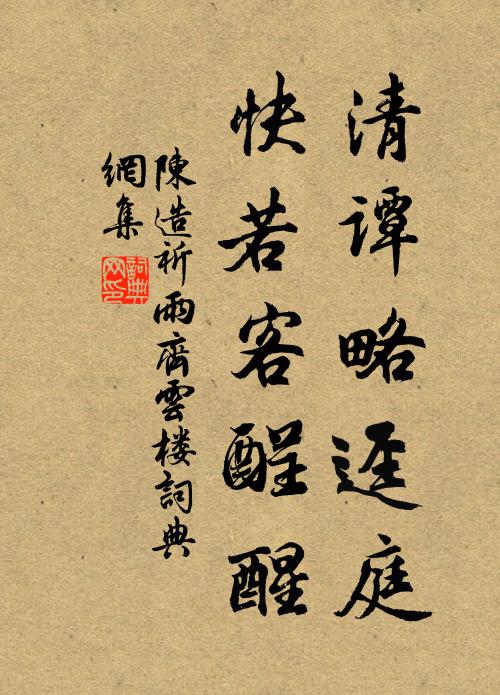 清譚略逕庭
快若客酲醒
陳造祈雨齊雲楼詞典
網集
詞典
网印